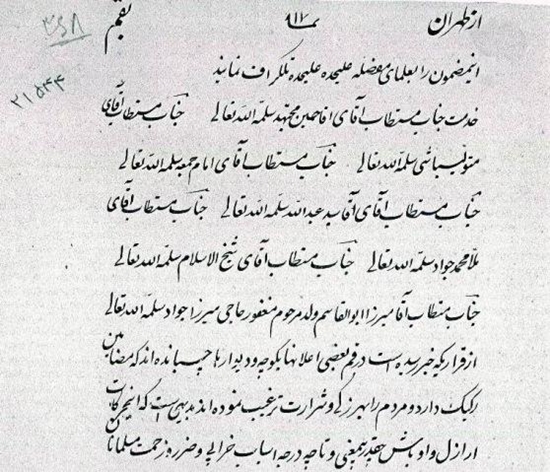 از طهران ۹۱۷ بقم
۳۶۸
۲۱۵۴۴
این مضمون را بعلمای مفصله علیحده علیحده تلگراف نمایند
خدمت جناب مستطاب آقای آقا حسین مجتهد سلمه الله تعالی جناب مستطاب آقای
متولیباشی سلمه الله تعالی جناب مستطاب آقای امام جمعه سلمه الله تعالی
جناب مستطاب آقای آقا سید عبدالله سلمه الله تعالی جناب مستطاب آقای
ملا محمد جواد سلمه الله تعالی جناب مستطاب آقای شیخ الاسلام سلمه الله تعالی
جناب مستطاب آقا میرزا ابوالقاسم ولد مرحوم مغفور حاجی میرزا جواد سلمه الله تعالی
از قراریکه خبر رسیده است در قم بعضی اعلانها بکوچه و دیوارها چسبانده اند که مضامین
رکیک دارد و مردم را بهرزگی و شرارت ترغیب نموده اند بدیهی است که این حرکات
ارازل و اوباش چقدر بیمعنی و تا چه درجه اسباب خرابی و ضرر و زحمت مسلمانان